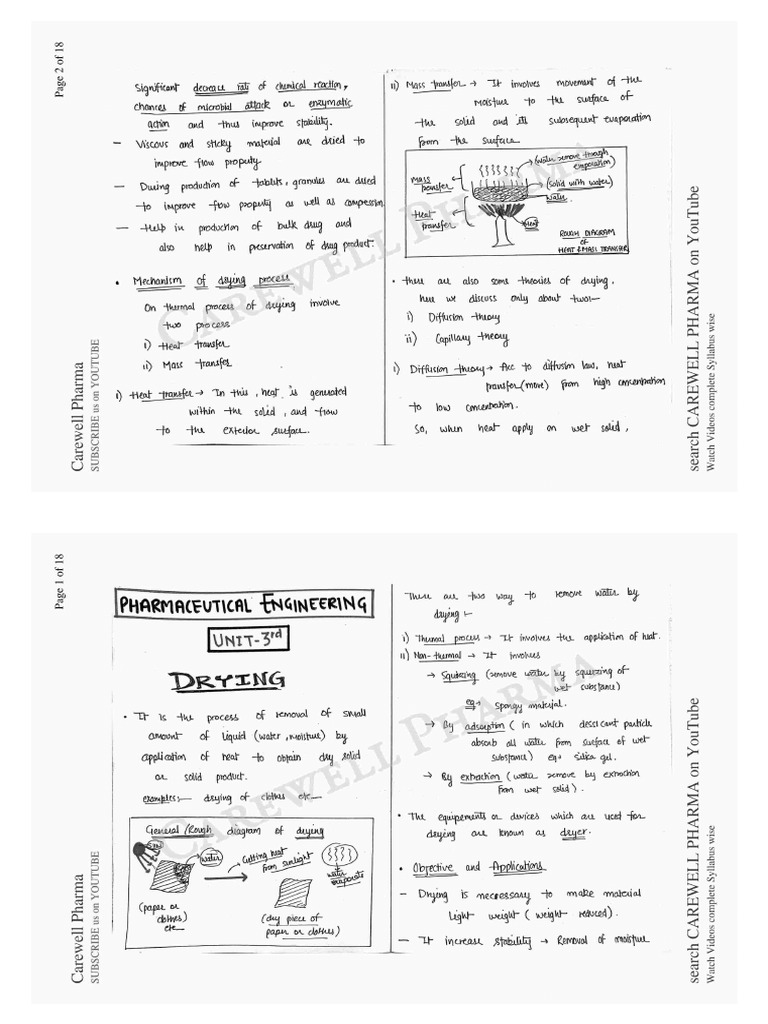 Page 2 of 18
Carewell Pharma
SUBSCRIBE us on YOUTUBE
Significant decrease rate of chemical reaction,
chances of microbial attack or enzymatic
action and thus improve stability.
– Viscous and sticky material are dried to
improve flow property
– During production of tablets, granules are dried
to improve flow property as well as compression
– Help in production of bulk drug and
also help in preservation of drug product.
• Mechanism of drying process
On thermal process of drying involve
two process
i) Heat transfer
ii) Mass transfer
i) Heat transfer → In this, heat is generated
within the solid, and flow
to the exterior surface.
ii) Mass transfer → It involves movement of the
Moisture to the surface of
the solid and its subsequent evaporation
from the surface.
Mass transfer
Heat transfer
(water remove through evaporation)
(solid with water)
water
Heat
ROUGH DIAGRAM
OF
HEAT & MASS TRANSFER
• there are also some theories of drying,
here we discuss only about two—
i) Diffusion theory
ii) Capillary theory
i) Diffusion theory → Acc to diffusion law, heat
transfer (move) from high concentration
to low concentration.
So, when heat apply on wet solid,
CAREWELL PHARMA
search CAREWELL PHARMA on YouTube
Watch Videos complete Syllabus wise
Page 1 of 18
Carewell Pharma
SUBSCRIBE us on YOUTUBE
PHARMACEUTICAL ENGINEERING
UNIT-3rd
DRYING
• It is the process of removal of small
amount of liquid (water, moisture) by
application of heat to obtain dry solid
or solid product.
examples:— drying of clothes etc—
General/Rough diagram of drying
Sun
water
Getting heat
from sunlight
water
evaporate
(paper or
clothes)
etc—
(dry piece of
paper or clothes)
There are two way to remove water by
drying :-
i) Thermal process → It involves the application of heat.
ii) Non-thermal → It involves
→ Squeezing (remove water by squeezing of
wet substance)
eg→ spongy material.
→ By adsorption (in which dessicant particle
absorb all water from surface of wet
substance) eg→ silica gel.
→ By extraction (water remove by extraction
from wet solid).
• The equipements or devices which are used for
drying are known as dryer.
• Objective and Applications
– Drying is necessary to make material
light weight (weight reduced).
– It increase stability → Removal of moisture
CAREWELL PHARMA
search CAREWELL PHARMA on YouTube
Watch Videos complete Syllabus wise